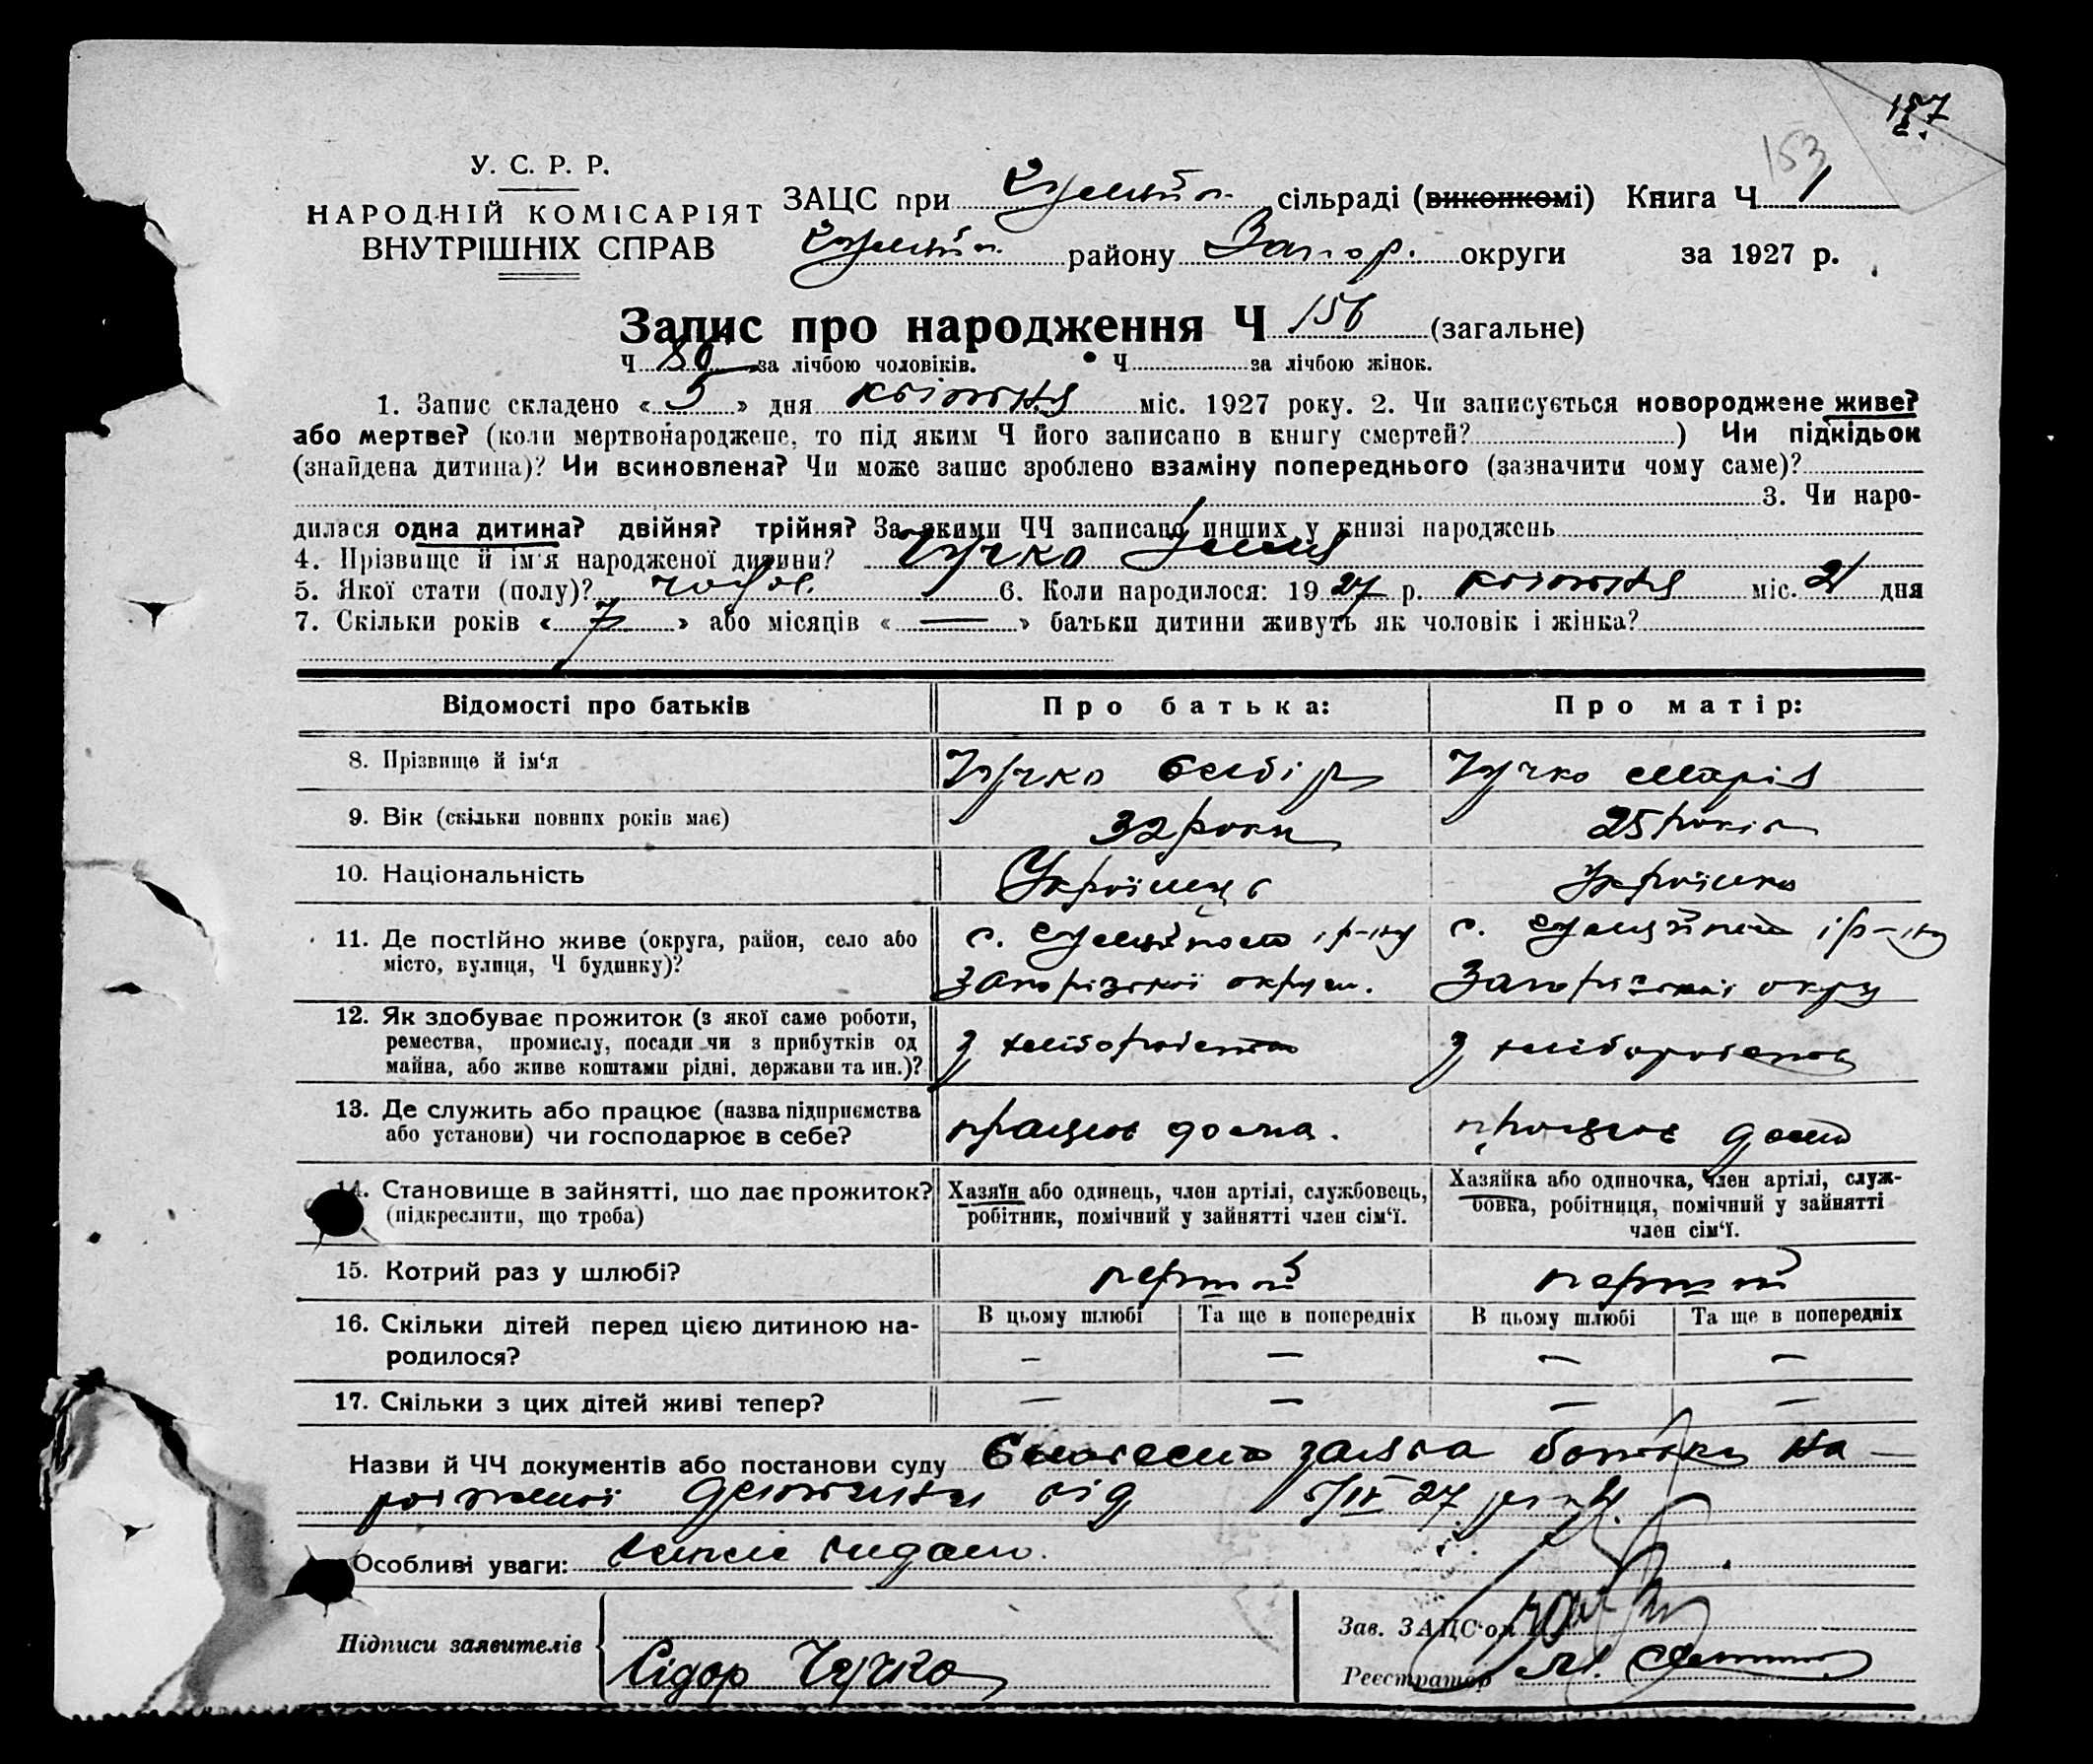 157
153
У. С. Р. Р.
НАРОДНІЙ КОМІСАРІЯТ
ВНУТРІШНІХ СПРАВ
ЗАЦС при сільраді (виконкомі) Книга Ч 1
району Запор. округи за 1927 р.
Запис про народження Ч 156 (загальне)
Ч 80 за лічбою чоловіків. Ч за лічбою жінок.
1. Запис складено « 5 » дня квітня міс. 1927 року. 2. Чи записується новороджене живе?
або мертве? (коли мертвонароджене, то під яким Ч його записано в книгу смертей? ) Чи підкідьок
(знайдена дитина)? Чи всиновлена? Чи може запис зроблено взаміну попереднього (зазначити чому саме)?
3. Чи наро-
дилася одна дитина? двійня? трійня? За якими ЧЧ записано инших у книзі народжень
4. Прізвище й ім'я народженої дитини? Чучко
5. Якої стати (полу)? чолов. 6. Коли народилося: 19 27 р. квітня міс. дня
7. Скільки років « 7 » або місяців « — » батьки дитини живуть як чоловік і жінка?
Відомості про батьків Про батька: Про матір:
8. Прізвище й ім'я Чучко Чучко Марія
9. Вік (скільки повних років має) 32 роки 25 років
10. Національність Українець Українка
11. Де постійно живе (округа, район, село або
місто, вулиця, Ч будинку)?
с. і р-ну с. і р-ну
Запорізької округи. Запорізької окру
12. Як здобуває прожиток (з якої саме роботи,
ремества, промислу, посади чи з прибутків од
майна, або живе коштами рідні, держави та ин.)?
з хліборобства з хліборобства
13. Де служить або працює (назва підприємства
або установи) чи господарює в себе?
працює дома. працює дома
14. Становище в зайнятті, що дає прожиток?
(підкреслити, що треба)
Хазяїн або одинець, член артілі, службовець,
робітник, помічний у зайнятті член сім'ї.
Хазяйка або одиночка, член артілі, служ-
бовка, робітниця, помічний у зайнятті
член сім'ї.
15. Котрий раз у шлюбі? перший перший
16. Скільки дітей перед цією дитиною на-
родилося?
В цьому шлюбі Та ще в попередніх В цьому шлюбі Та ще в попередніх
– — — —
17. Скільки з цих дітей живі тепер? — — — —
Назви й ЧЧ документів або постанови суду заява батька на
дитини від 5/IV 27 року
Особливі уваги: видано.
Підписи заявителів
Сідор Чучко
Зав. ЗАЦС'ом
Реєстратор